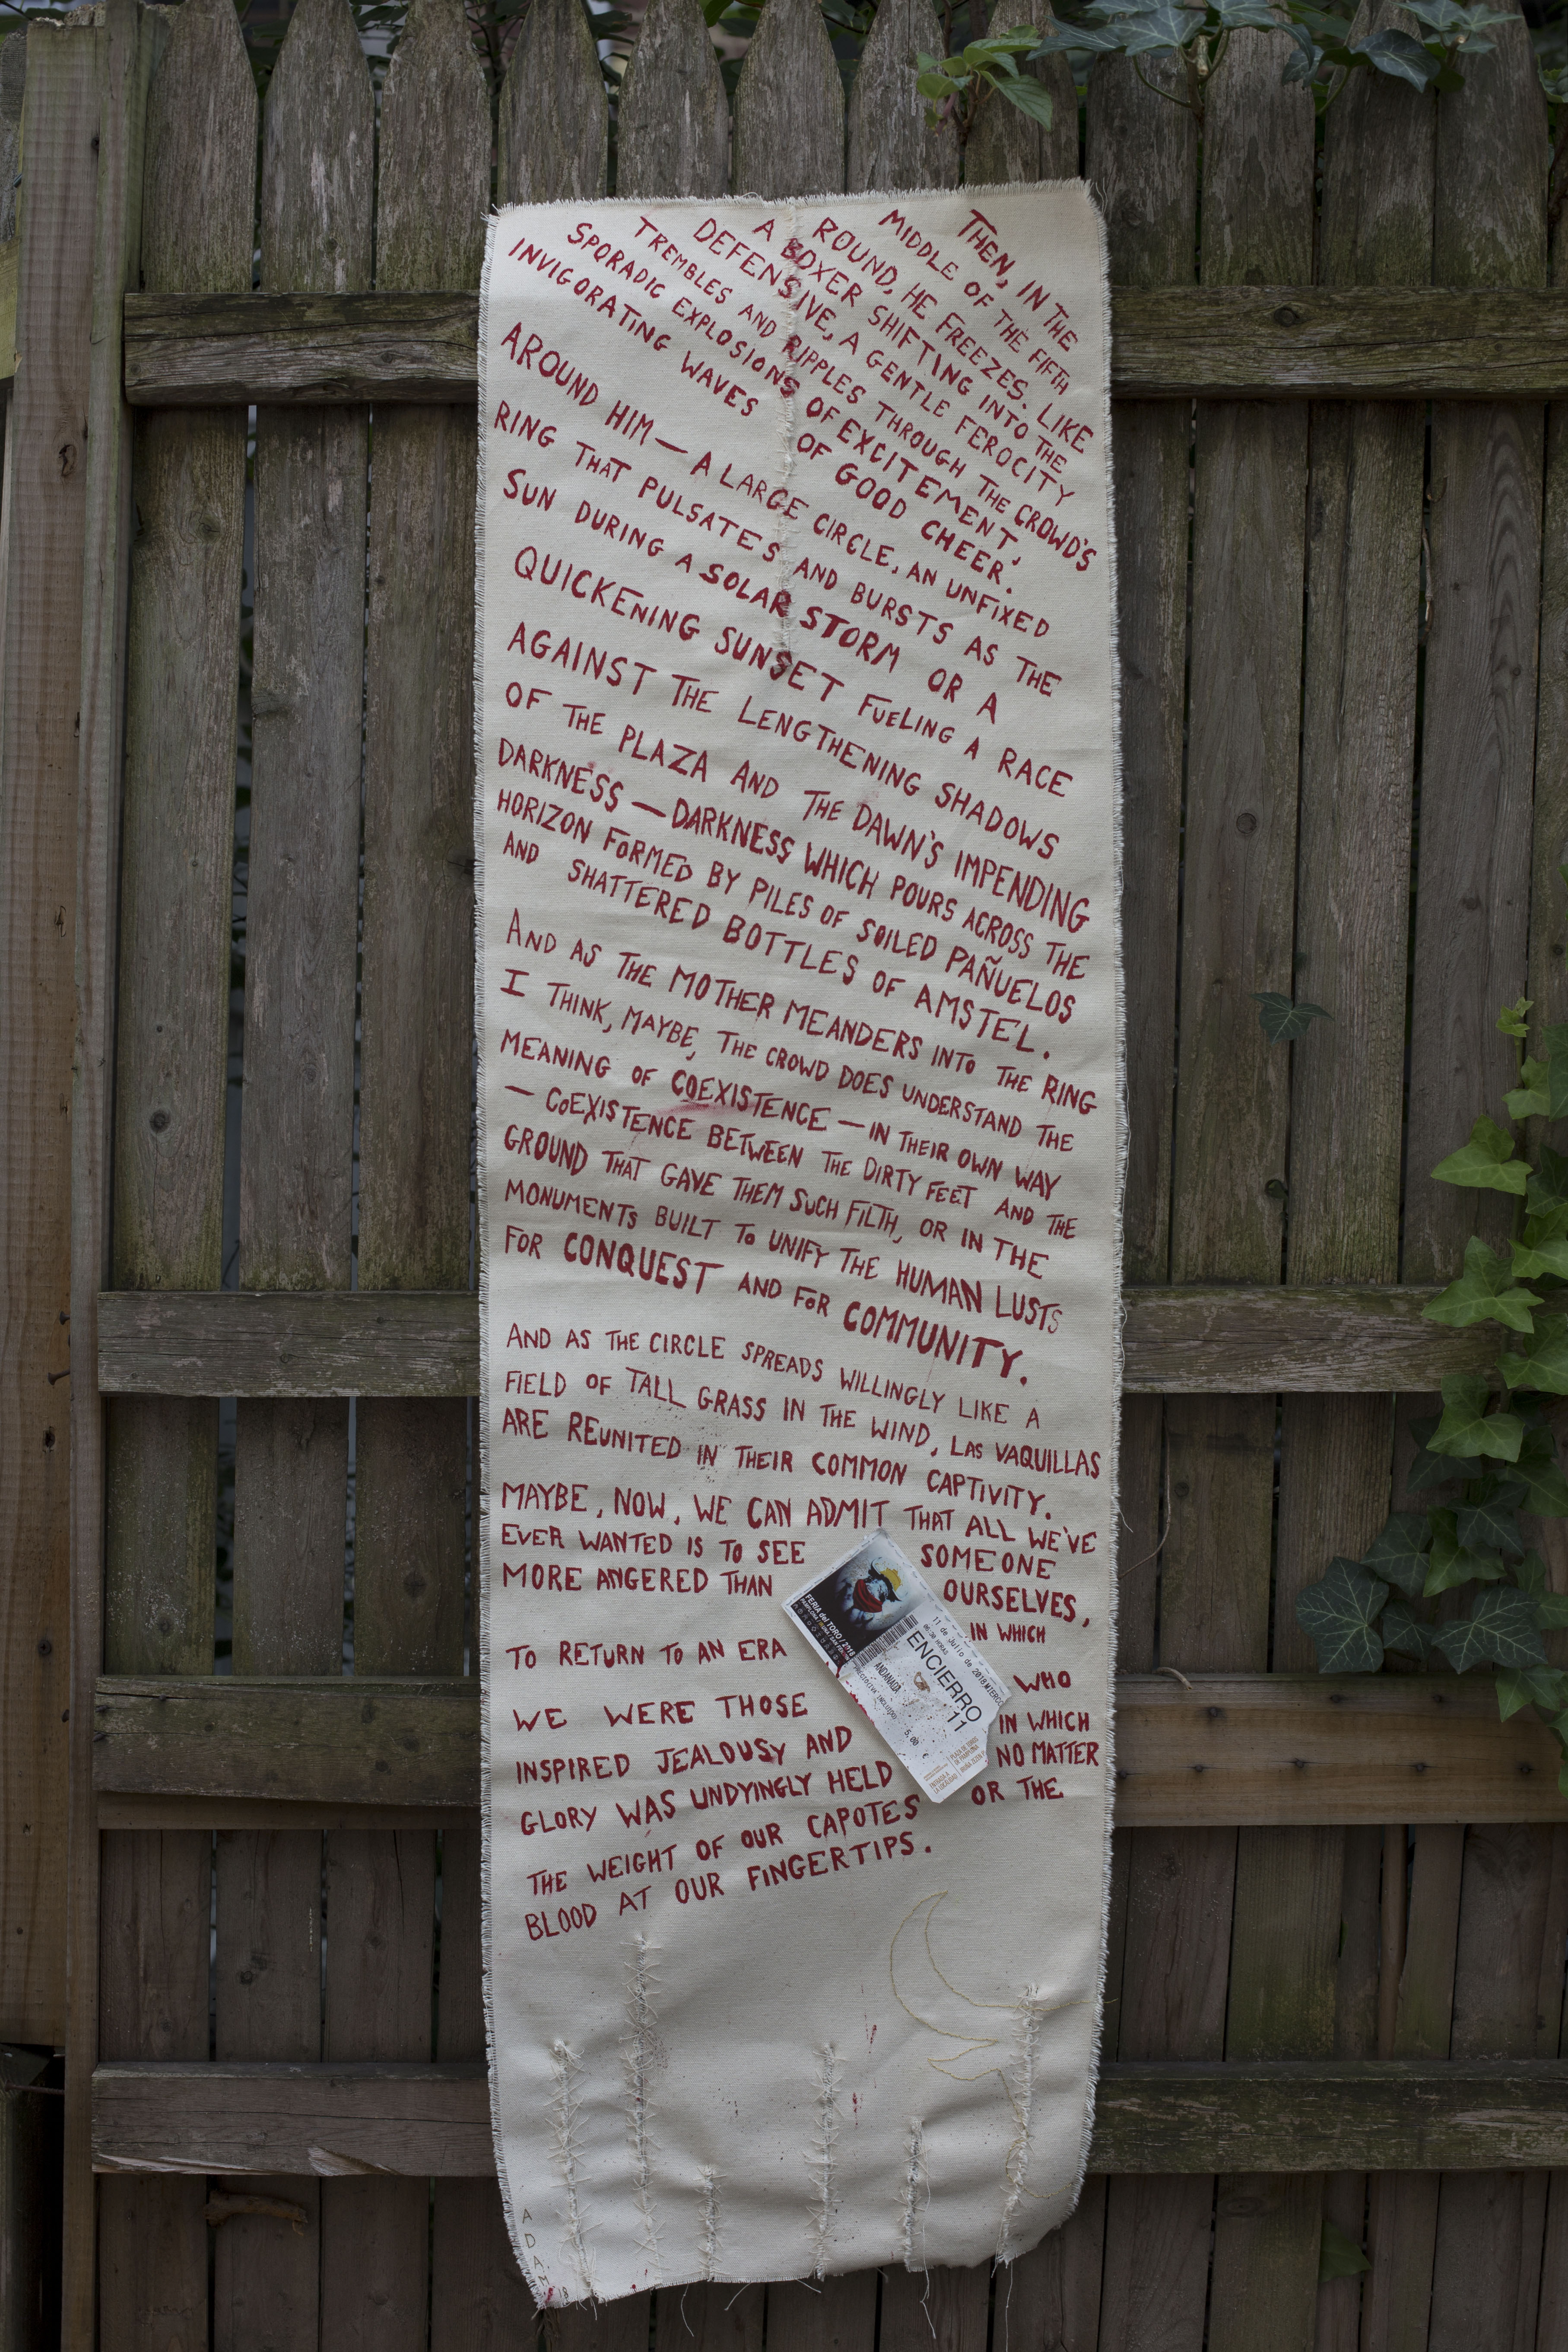 THEN, IN THE
MIDDLE OF THE FIFTH
ROUND, HE FREEZES. LIKE
A BOXER SHIFTING INTO THE
DEFENSIVE, A GENTLE FEROCITY
TREMBLES AND RIPPLES THROUGH THE CROWD'S
SPORADIC EXPLOSIONS OF EXCITEMENT,
INVIGORATING WAVES OF GOOD CHEER.
AROUND HIM — A LARGE CIRCLE, AN UNFIXED
RING THAT PULSATES AND BURSTS AS THE
SUN DURING A SOLAR STORM OR A
QUICKENING SUNSET FUELING A RACE
AGAINST THE LENGTHENING SHADOWS
OF THE PLAZA AND THE DAWN'S IMPENDING
DARKNESS — DARKNESS WHICH POURS ACROSS THE
HORIZON FORMED BY PILES OF SOILED PAÑUELOS
AND SHATTERED BOTTLES OF AMSTEL.
AND AS THE MOTHER MEANDERS INTO THE RING
I THINK, MAYBE, THE CROWD DOES UNDERSTAND THE
MEANING OF COEXISTENCE — IN THEIR OWN WAY
— COEXISTENCE BETWEEN THE DIRTY FEET AND THE
GROUND THAT GAVE THEM SUCH FILTH, OR IN THE
MONUMENTS BUILT TO UNIFY THE HUMAN LUSTS
FOR CONQUEST AND FOR COMMUNITY.
AND AS THE CIRCLE SPREADS WILLINGLY LIKE A
FIELD OF TALL GRASS IN THE WIND, LAS VAQUILLAS
ARE REUNITED IN THEIR COMMON CAPTIVITY.
MAYBE, NOW, WE CAN ADMIT THAT ALL WE'VE
EVER WANTED IS TO SEE SOMEONE
MORE ANGERED THAN OURSELVES,
TO RETURN TO AN ERA IN WHICH
WE WERE THOSE WHO
INSPIRED JEALOUSY AND IN WHICH
GLORY WAS UNDYINGLY HELD NO MATTER
THE WEIGHT OF OUR CAPOTES OR THE
BLOOD AT OUR FINGERTIPS.
FERIA del TORO / 2018
11 de Julio de 2018
ENCIERRO
11
ANDANADA
5,00 €
PLAZA DE TOROS
DE PAMPLONA
ADAM
18